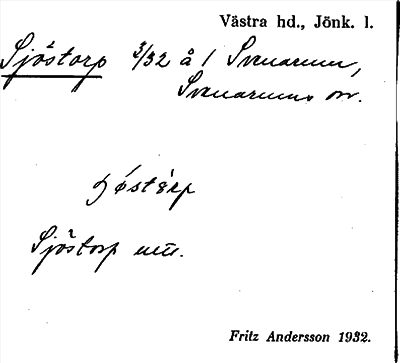 Västra hd., Jönk. l.
Sjöstorp 3/32 å 1 Svenarum,
Svenarums sn.
Sjöstorp
Fritz Andersson 1932.